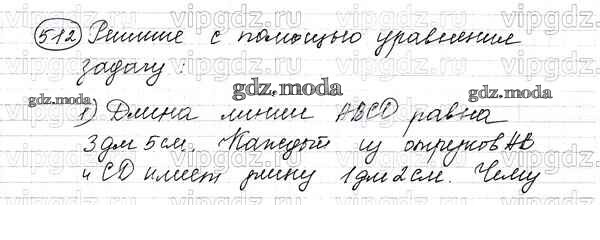 vipgdz.ru vipgdz.ru vipgdz.ru
512 Решите с помощью уравнения
задачу:
gdz.moda
gdz.moda gdz.moda
1) Длина линии ABCD равна
3 дм 5 см. Каждый из отрезков AB
и CD имеет длину 1 дм 2 см. Чему